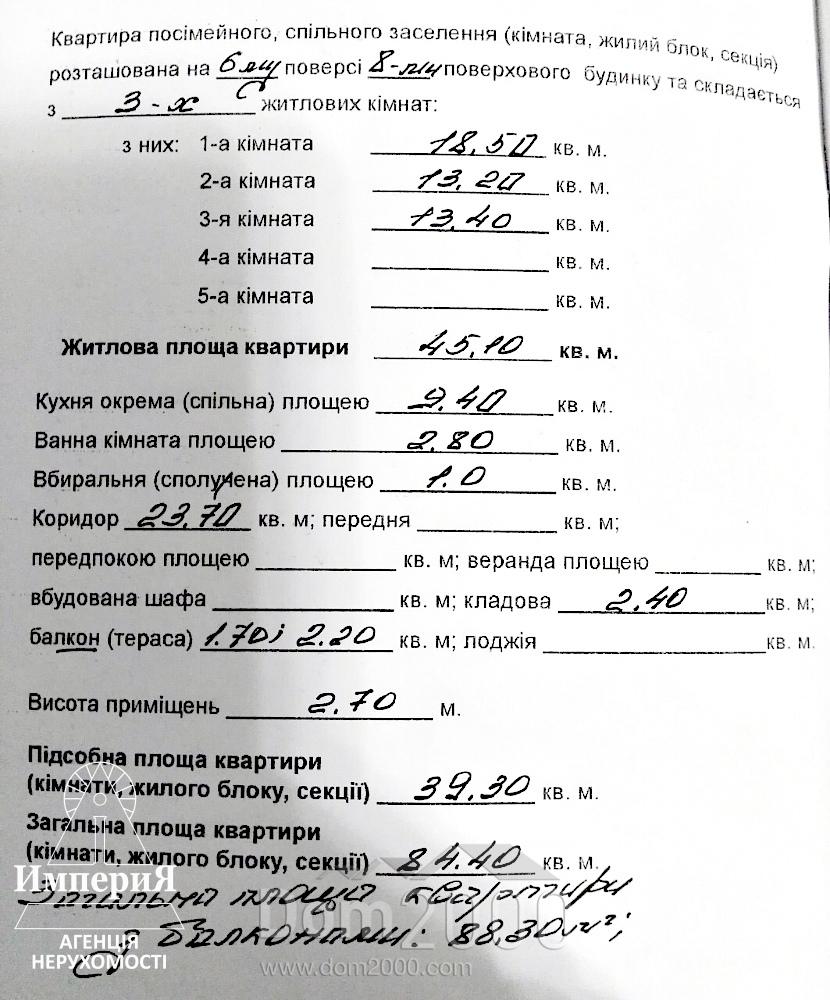 Квартира посімейного, спільного заселення (кімната, жилий блок, секція)
розташована на 6му поверсі 8-ми поверхового будинку та складається
з 3-х житлових кімнат:
з них: 1-а кімната 18.50 кв. м.
2-а кімната 13.20 кв. м.
3-я кімната 13.40 кв. м.
4-а кімната кв. м.
5-а кімната кв. м.
Житлова площа квартири 45.10 кв. м.
Кухня окрема (спільна) площею 9.40 кв. м.
Ванна кімната площею 2.80 кв. м.
Вбиральня (сполучена) площею 1.0 кв. м.
Коридор 23.70 кв. м; передня кв. м;
передпокою площею кв. м; веранда площею кв. м;
вбудована шафа кв. м; кладова 2.40 кв. м;
балкон (тераса) 1.70; 2.20 кв. м; лоджія кв. м.
Висота приміщень 2.70 м.
Підсобна площа квартири
(кімнати, жилого блоку, секції) 39.30 кв. м.
Загальна площа квартири
(кімнати, жилого блоку, секції) 84.40 кв. м.
Загальна площа квартири
з балконами: 88.30 м²;
ИмпериЯ
АГЕНЦІЯ
НЕРУХОМОСТІ
Dom2000
www.dom2000.com